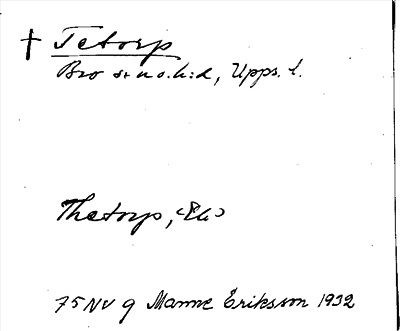 † Tetorp
Bro sn o. h:d, Upps. l.
Thetorp,
75 NV g Manne Eriksson 1932